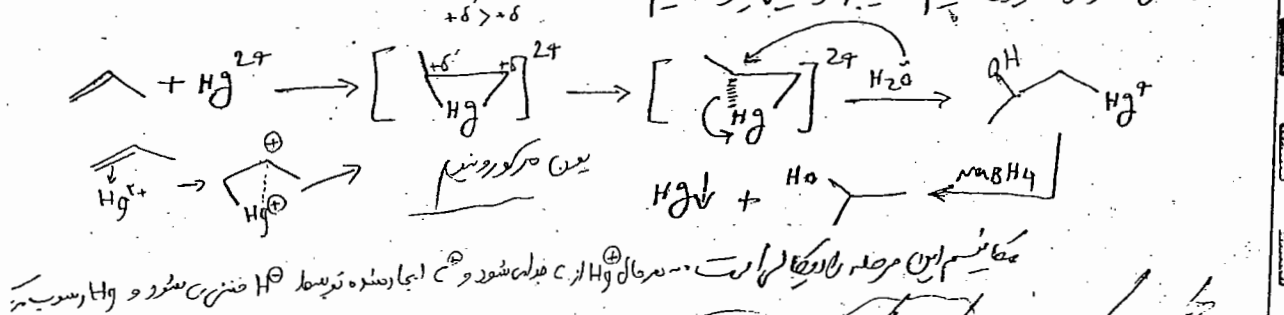 +δ' > +δ
+ Hg²⁺ → [ +δ' +δ Hg ]²⁺ → [ Hg ]²⁺ H₂O → OH Hg⁺
Hg²⁺ → ⊕ Hg⊕ → یون مرکورونیوم Hg↓ + HO NaBH₄
مکانیسم این مرحله رادیکالی است از C جدا می شود و C⊕ ایجاد شده توسط H⊖ خنثی می شود و Hg رسوب